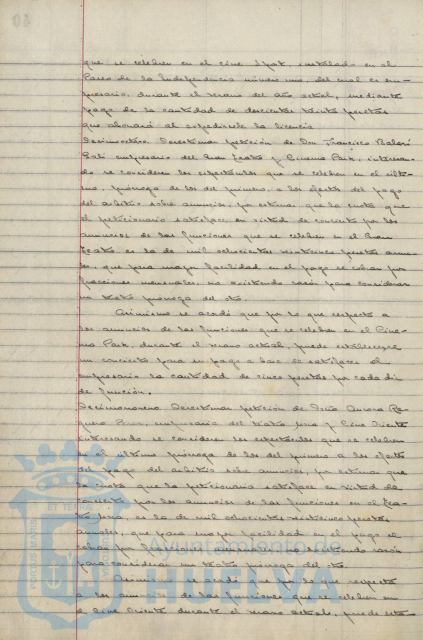 que se celebren en el cine Spot, instalado en el
Paseo de la Independencia número uno, del cual es em-
presario, durante el verano del año actual, mediante
pago de la cantidad de doscientas treinta pesetas
que abonará al expedirsele la licencia
Decimoctavo. Desestimar petición de Don Francisco
empresario del Gran Teatro y Cinema Park, interesan-
do se consideren los espectáculos que se celebren en el últi-
mo, prórroga de los del primero, a los efectos del pago
del arbitrio sobre anuncios, por estimar que la cuota que
el peticionario satisface, en virtud de concierto por los
anuncios de las funciones que se celebren en el Gran
Teatro, es la de mil ochocientas veinticinco pesetas anua-
les, que para mayor facilidad en el pago se cobra por
fracciones mensuales, no existiendo razón para considerar
un teatro prórroga del otro.
Asimismo se acordó que por lo que respecta a
los anuncios de las funciones que se celebren en el Cine-
ma Park, durante el verano actual, puede establecerse
un concierto para su pago a base de satisfacer el
empresario la cantidad de cinco pesetas por cada día
de función.
Decimonoveno. Desestimar petición de Doña Aurora
empresaria del teatro Mora y Cine Oriente
interesando se consideren los espectáculos que se celebren
en el último prórroga de los del primero a los efectos
del pago del arbitrio sobre anuncios, por estimar que
la cuota que la peticionaria satisface en virtud de
concierto por los anuncios de las funciones en el tea-
tro Mora, es la de mil ochocientas veinticinco pesetas
anuales, que para mayor facilidad en el pago se
cobra por fracciones razón
para considerar un teatro prórroga del otro.
Asimismo se acordó que por lo que respecta
a los anuncios de las funciones que se celebren en
el Cine Oriente durante el verano actual, puede esta-
Ayuntamiento de
HUELVA